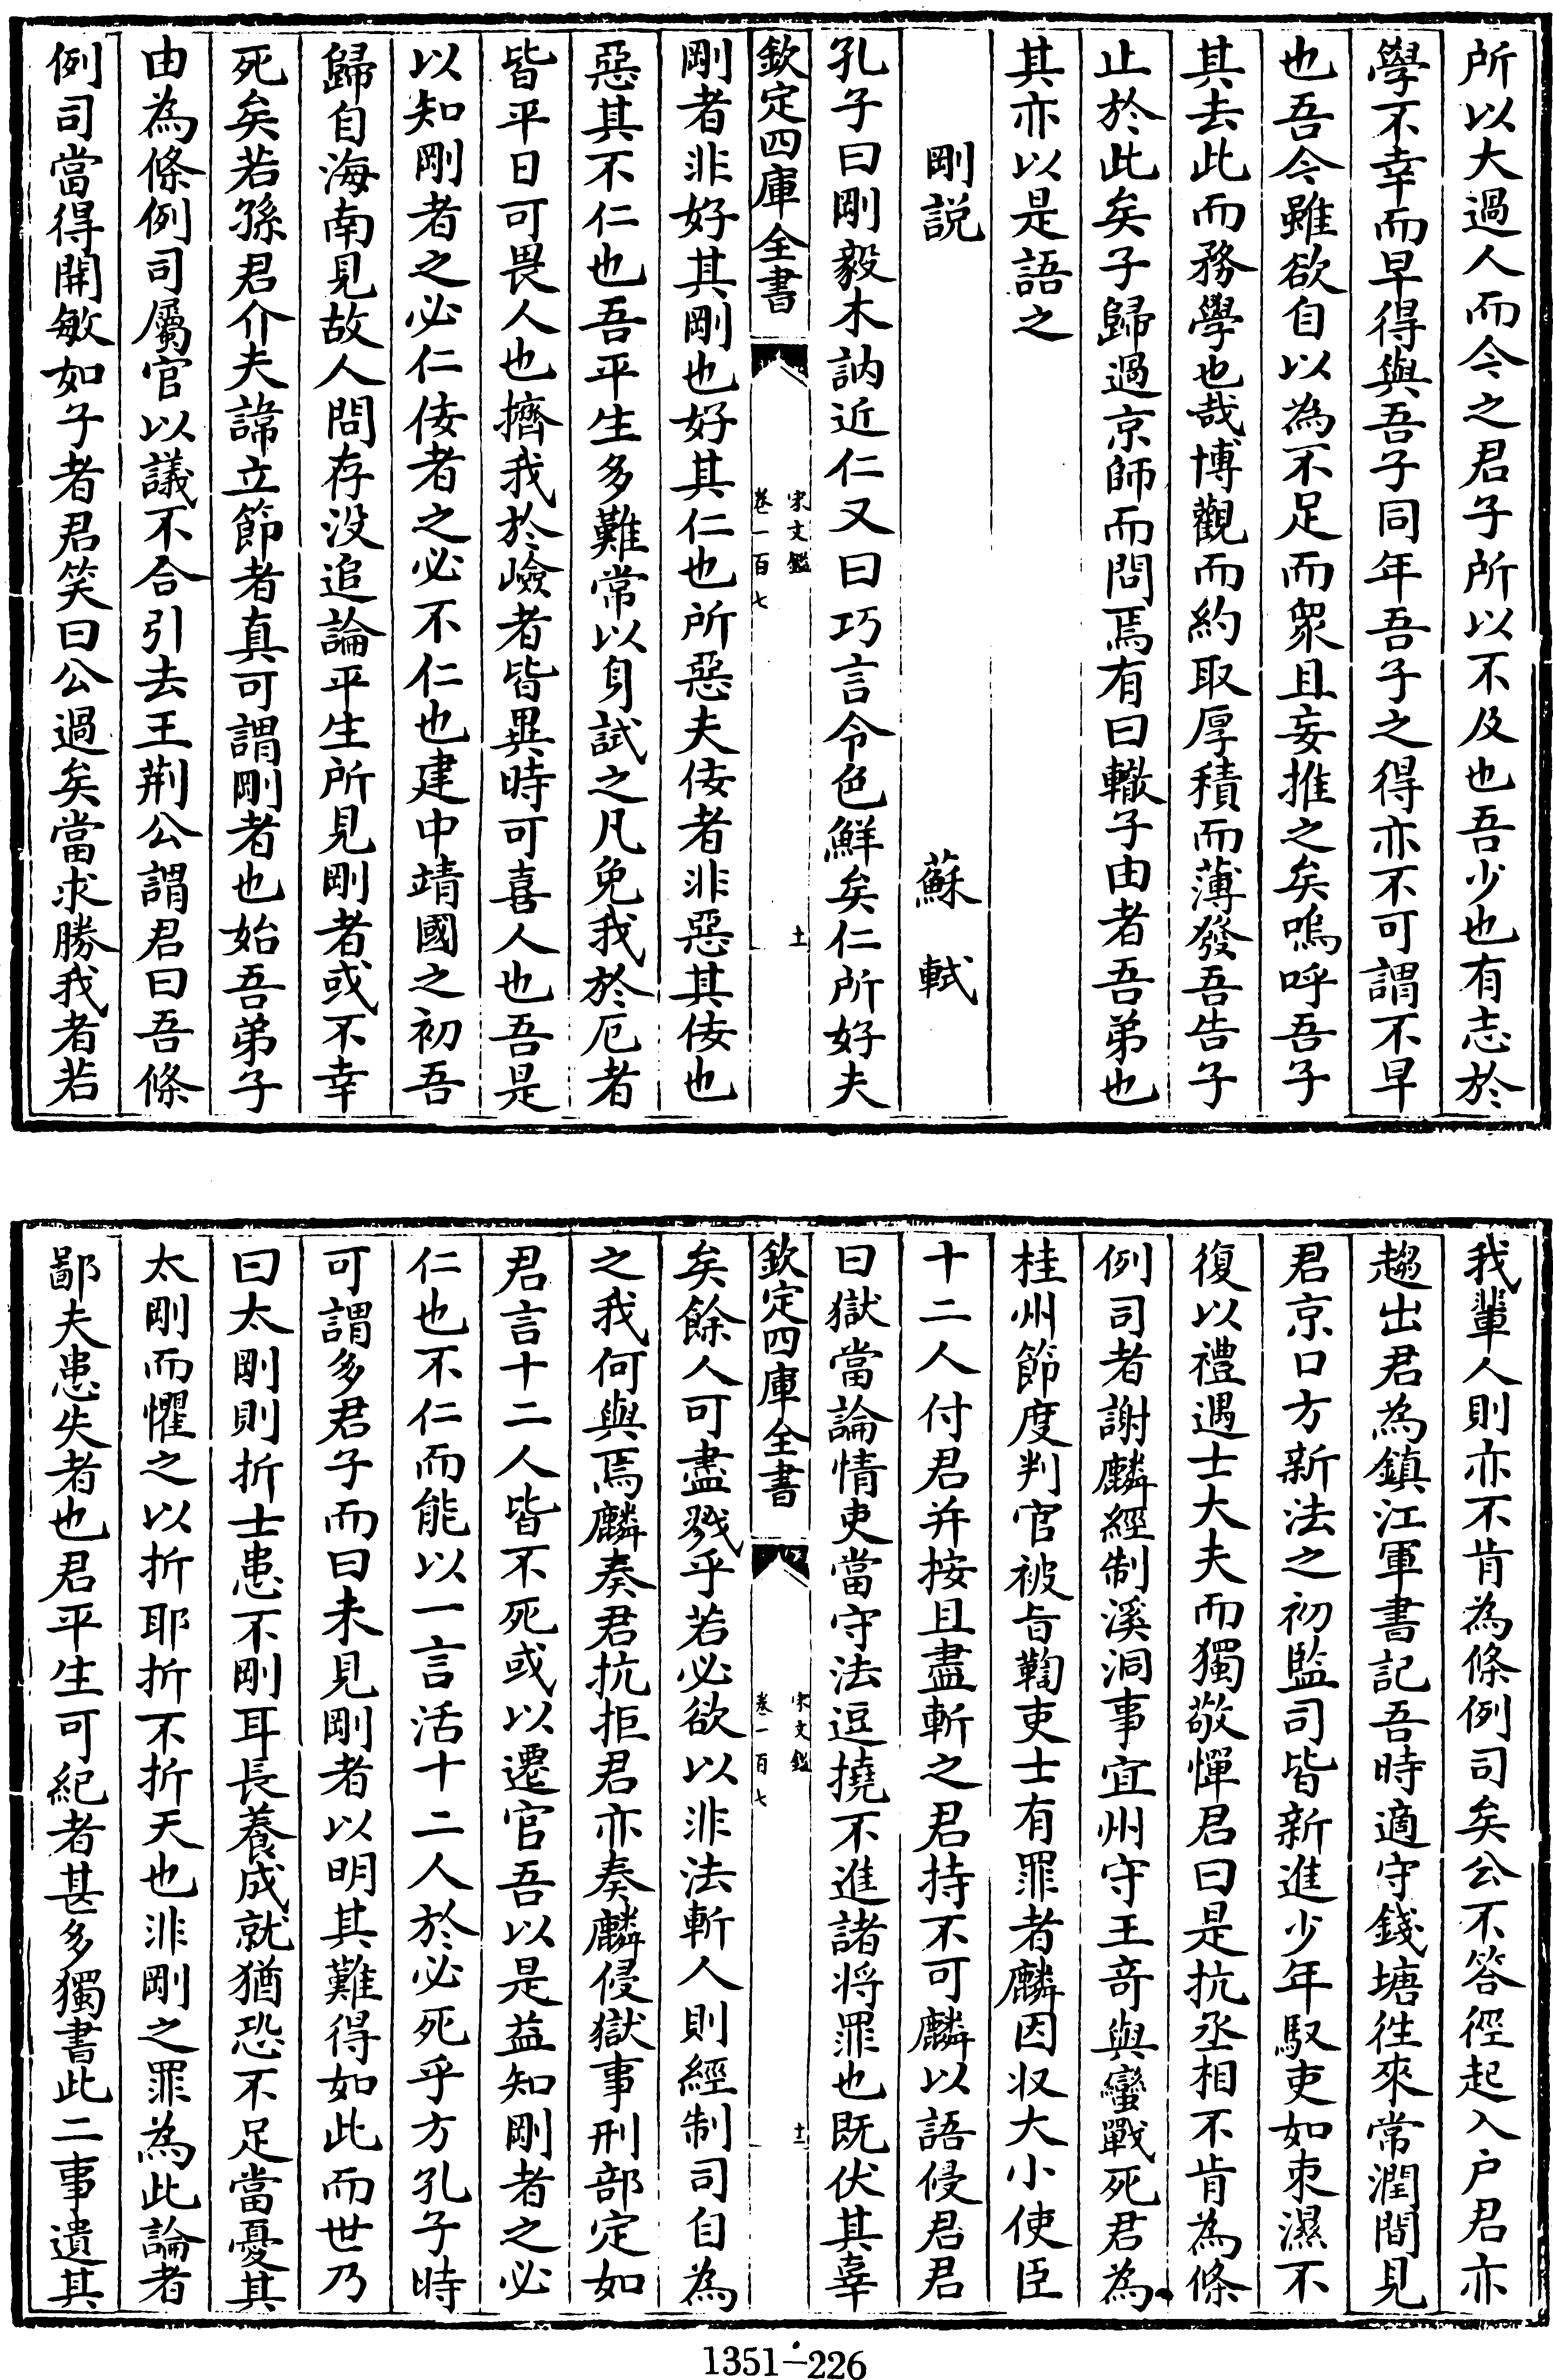 所以大過人而今之君子所以不及也吾少也有志於
學不幸而早得與吾子同年吾子之得亦不可謂不早
也吾今雖欲自以為不足而衆且妄推之矣嗚呼吾子
其去此而務學也哉博觀而約取厚積而薄發吾告子
止於此矣子歸過京師而問焉有曰轍子由者吾弟也
其亦以是語之
剛説　蘇軾
孔子曰剛毅木訥近仁又曰巧言令色鮮矣仁所好夫
欽定四庫全書　宋文鑑　卷一百七　十一
剛者非好其剛也好其仁也所惡夫佞者非惡其佞也
惡其不仁也吾平生多難常以身試之凡免我於厄者
皆平日可畏人也擠我於嶮者皆異時可喜人也吾是
以知剛者之必仁佞者之必不仁也建中靖國之初吾
歸自海南見故人問存没追論平生所見剛者或不幸
死矣若孫君介夫諱立節者真可謂剛者也始吾弟子
由為條例司屬官以議不合引去王荆公謂君曰吾條
例司當得開敏如子者君笑曰公過矣當求勝我者若
我輩人則亦不肯為條例司矣公不答徑起入户君亦
趨出君為鎮江軍書記吾時適守錢塘徃來常潤間見
君京口方新法之初監司皆新進少年馭吏如束濕不
復以禮遇士大夫而獨敬憚君曰是抗丞相不肯為條
例司者謝麟經制溪洞事宜州守王竒與蠻戰死君為
桂州節度判官被㫖鞫吏士有罪者麟因収大小使臣
十二人付君并按且盡斬之君持不可麟以語侵君君
曰獄當論情吏當守法逗撓不進諸将罪也既伏其辜
欽定四庫全書　宋文鑑　卷一百七　十二
矣餘人可盡戮乎若必欲以非法斬人則經制司自為
之我何與焉麟奏君抗拒君亦奏麟侵獄事刑部定如
君言十二人皆不死或以遷官吾以是益知剛者之必
仁也不仁而能以一言活十二人於必死乎方孔子時
可謂多君子而曰未見剛者以明其難得如此而世乃
曰太剛則折士患不剛耳長養成就猶恐不足當憂其
太剛而懼之以折耶折不折天也非剛之罪為此論者
鄙夫患失者也君平生可紀者甚多獨書此二事遺其
1351-226